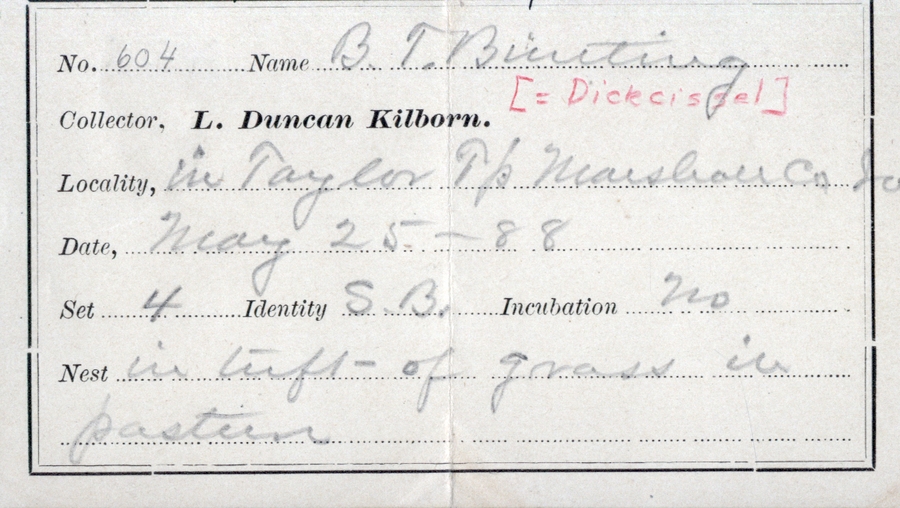 No. 604 Name B. T. Bunting
[= Dickcissel]
Collector, L. Duncan Kilborn.
Locality, in Taylor Tp Marshall Co Io
Date, May 25 - 88
Set 4 Identity S. B. Incubation No
Nest in tuft of grass in
pasture